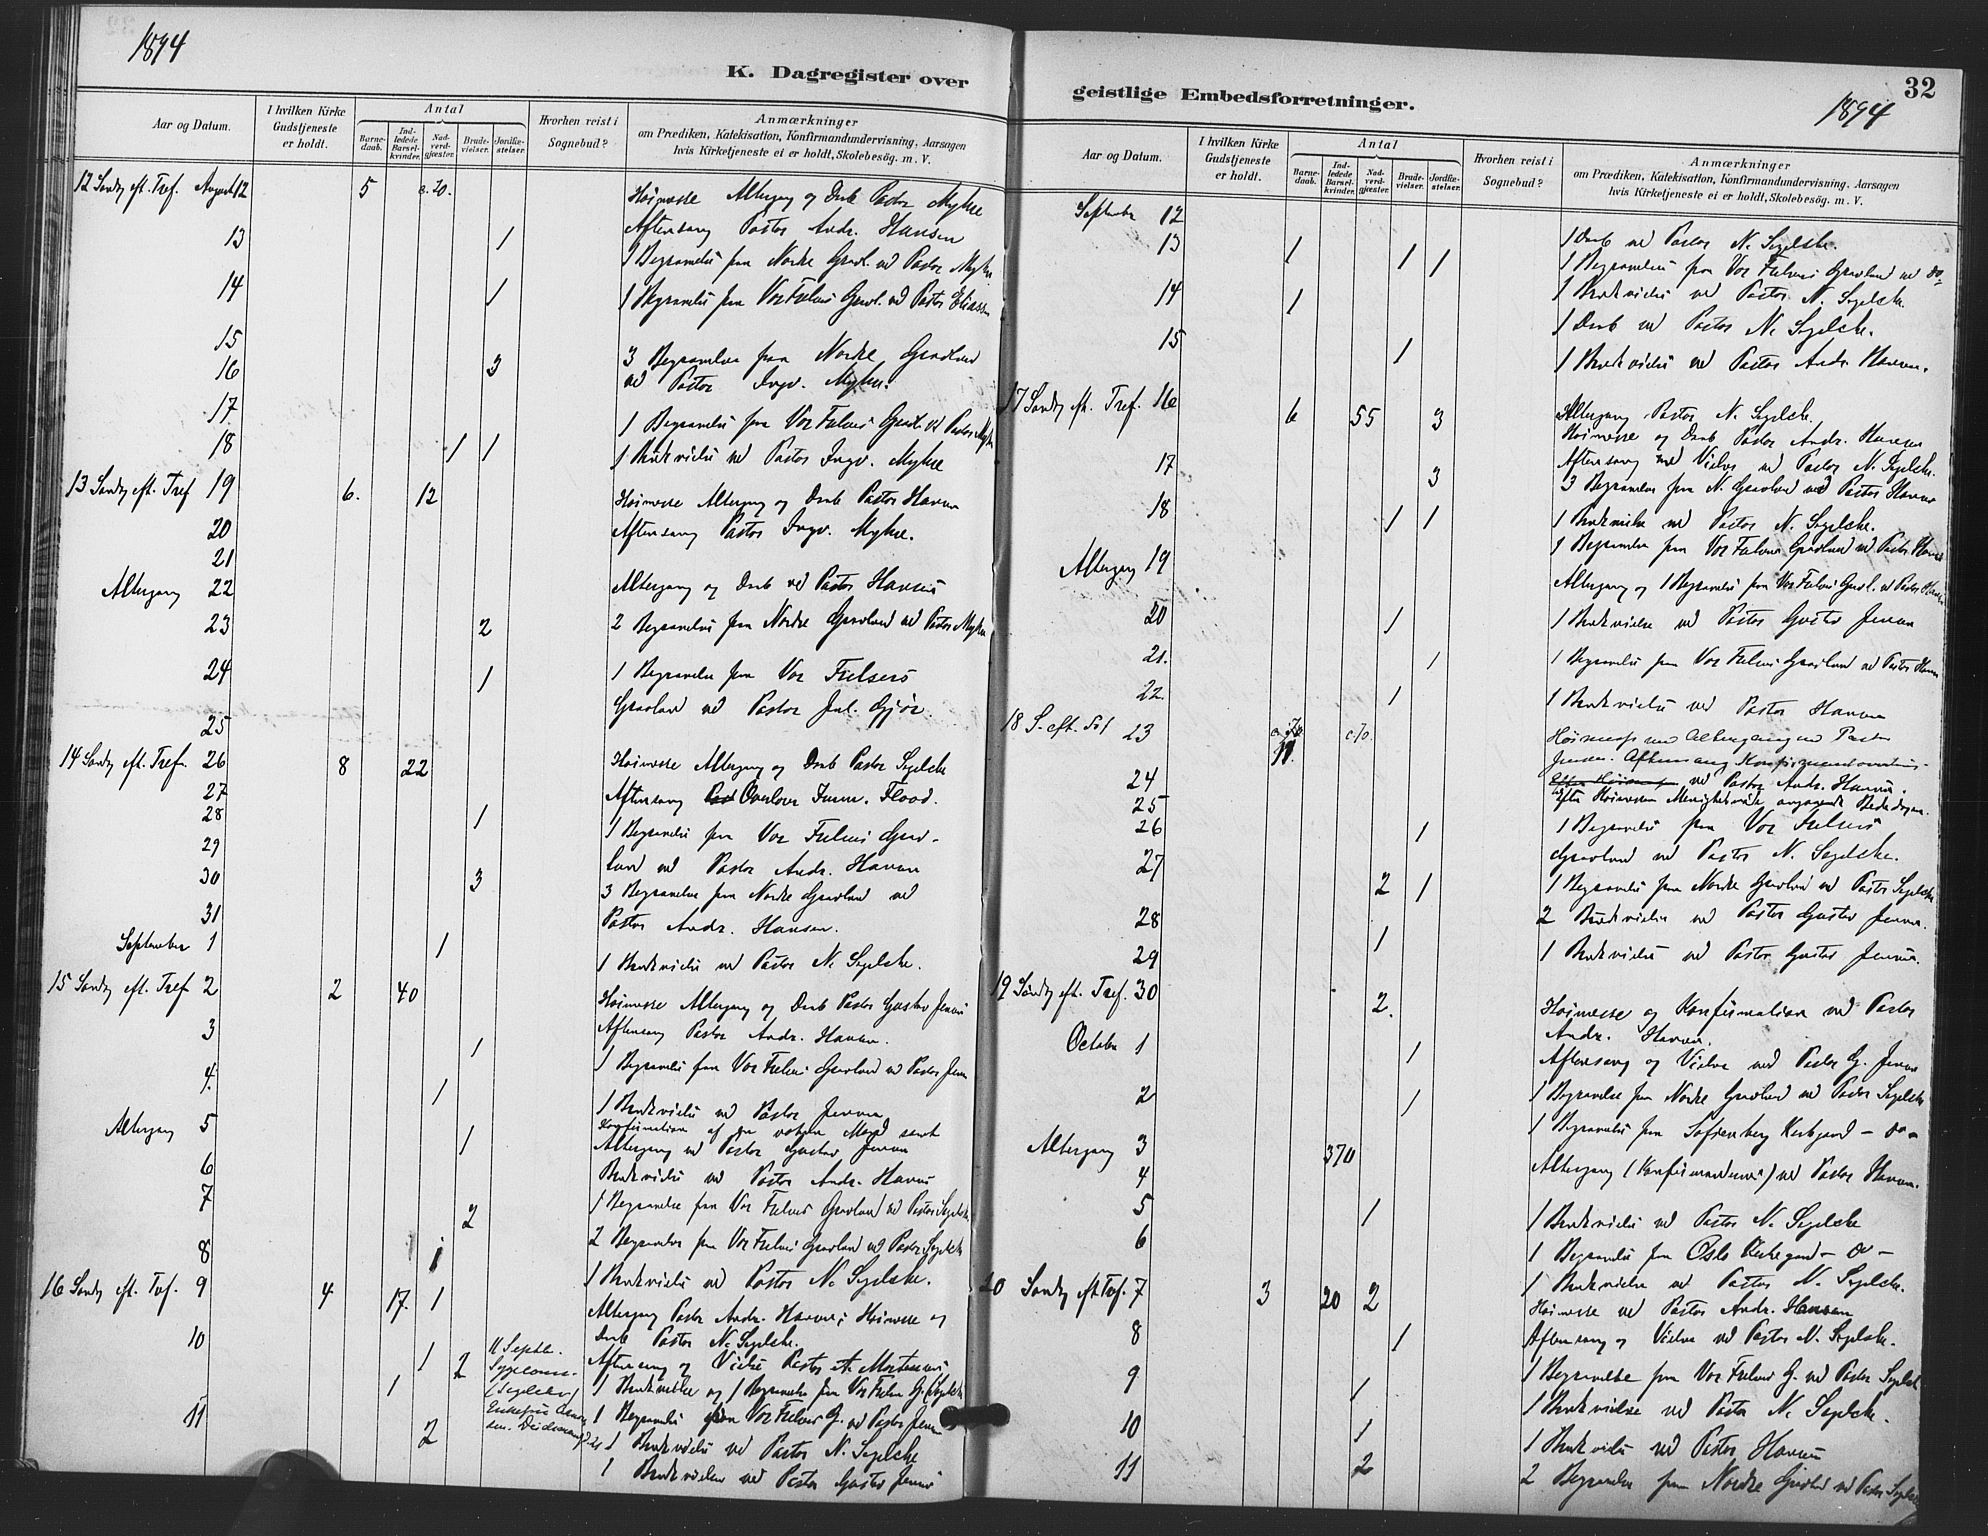 1894
K. Dagregister over
Aar og Datum.
I hvilken Kirke Gudstjeneste er holdt.
Antal
Barne-daab.
Ind-ledede Barsel-kvinder.
Nad-verd-gjæster.
Brude-vielser.
Jordfæ-stelser.
Hvorhen reist i Sognebud?
Anmærkninger
om Prædiken, Katekisation, Konfirmandundervisning, Aarsagen
hvis Kirketjeneste ei er holdt, Skolebesøg. m. V.
12 Søndg eft. Tref. August 12 5 c. 20. Høimesse Altergang og Daab Pastor Myhre
Aftensang Pastor Andr. Hansen
13 1 1 Begravelse fra Nordre Gravl. ved Pastor Myhre
14 1 1 Begravelse fra Vor Frelsers Gravl. ved Pastor Eliassen
15
16 3 3 Begravelser fra Nordre Gravlund
ved Pastor Ingv. Myhre.
17 1 Begravelse fra Vor Frelsers Gravl. v. Pastor Myhre
18 1 1 1 Brudevielse ved Pastor Ingv. Myhre
13 Søndg eft. Tref 19 6. 12 Høimesse Altergang og Daab Pastor Hansen
20 Aftensang Pastor Ingv. Myhre.
21
Altergang 22 Altergang og Daab ved Pastor Hansen
23 2 2 Begravelser fra Nordre Gravlund ved Pastor Myhre
24 1 1 Begravelse fra Vor Frelsers
Gravlund ved Pastor Jul. Gjør
25
14 Søndg eft. Tref. 26 8 22 Høimesse Altergang og Daab Pastor Segelcke
27 Aftensang Overlærer Flood.
28 1 1 Begravelse fra Vor Frelsers Grav-
29 lund ved Pastor Andr. Hansen
30 3 3 Begravelser fra Nordre Gravlund ved
31 Pastor Andr. Hansen.
September 1 1 1 Brudevielse ved Pastor N. Segelcke.
15 Søndg eft. Tref 2 2 40 Høimesse Altergang og Daab Pastor Gustav Jensen
Aftensang Pastor Andr. Hansen.
3 1 1 Begravelse fra Vor Frelsers Gravlund ved Pastor Jensen
4. 1 1 Brudevielse ved Pastor Jensen
Konfirmation af en voksen Mand samt
Altergang 5 1 Altergang ved Pastor Gustav Jensen
6 Brudevielse ved Pastor Andr. Hansen
7 2 1 Begravelse fra Vor Frelsers Gravlund ved Pastor Segelcke
2 Begravelser fra Vor Frelsers Gravlund ved Pastor Segelcke
8 1 1 Brudevielse ved Pastor N. Segelcke.
16 Søndg eft. Tref. 9 4 17. 1 Altergang Pastor Andr. Hansen; Høimesse og
Daab Pastor N. Segelcke.
10 1 2 11 Septbr. Aftensang og Vielse Pastor Mortensen
1 (Segelcke) 1 Brudevielse og 1 Begravelse fra Vor Frelsers G. (Segelcke)
11 1 Begravelse fra Vor Frelsers G. ved Pastor Jensen
2 1 Brudevielse ved Pastor N. Segelcke
1 Brudevielse ved Pastor Gustav Jensen
32
1894
geistlige Embedsforretninger.
Aar og Datum.
I hvilken Kirke Gudstjeneste er holdt.
Antal
Barne-daab.
Ind-ledede Barsel-kvinder.
Nad-verd-gjæster.
Brude-vielser.
Jordfæ-stelser.
Hvorhen reist i Sognebud?
Anmærkninger
om Prædiken, Katekisation, Konfirmandundervisning, Aarsagen
hvis Kirketjeneste ei er holdt, Skolebesøg. m. V.
September 12
13 1 1 1 1 Daab ved Pastor N. Segelcke.
1 Begravelse fra Vor Frelsers Gravlund ved do
14 1 1 Brudevielse ved Pastor N. Segelcke.
1 Daab ved Pastor N. Segelcke.
15 1 1 Brudevielse ved Pastor Andr. Hansen.
17 Søndg eft. Tref. 16 6 55 3 Altergang Pastor N. Segelcke.
Høimesse og Daab Pastor Andr. Hansen
Aftensang med Vielse ved Pastor N. Segelcke.
17 3 3 Begravelser fra N. Gravlund ved Pastor Hansen
18 1 1 1 Brudevielse ved Pastor N. Segelcke.
1 Begravelse fra Vor Frelsers Gravlund ved Pastor Hansen
Altergang 19 Altergang og 1 Begravelse fra Vor Frelsers Gravl. ved Pastor Hansen
20 1 1 Brudevielse ved Pastor Gustav Jensen
21. 1 1 Begravelse fra Vor Frelsers Gravlund ved Pastor Hansen
22. 1 1 Brudevielse ved Pastor Hansen
18 S. eft. Tref 23 Høimesse med Altergang ved Pastor
Jensen. Aftensang
24 ved Pastor Andr. Hansen.
25 Efter Høimessen Menighedsmøde angaaende Bededagen.
26 1 1 Begravelse fra Vor Frelsers
Gravlund ved Pastor N. Segelcke.
27 2 1 1 Begravelse fra Nordre Gravlund ved Pastor Segelcke
28 2 Brudevielser ved Pastor Gustav Jensen.
29 1 1 Brudevielse ved Pastor Gustav Jensen.
19 Søndg eft. Tref. 30 2. Høimesse og Konfirmation ved Pastor
Andr. Hansen.
October 1 1 Aftensang og Vielse ved Pastor G. Jensen
2 1 1 Begravelse fra Nordre Gravlund ved Pastor Segelcke
1 Begravelse fra Sofienberg Kirkegaard – do –
Altergang 3 370 Altergang (Konfirmanderne) ved Pastor Hansen.
4
5 1 1 Brudevielse ved Pastor N. Segelcke
6 1 Begravelse fra Oslo Kirkegaard – do –
1 Brudevielse ved Pastor N. Segelcke.
20 Søndg eft Tref. 7 3 20 2 Høimesse ved Pastor Andr. Hansen
8 1 Aftensang og Vielse ved Pastor N. Segelcke.
1 Begravelse fra Vor Frelsers G. ved Pastor Segelcke
9 1 1 Brudevielse ved Pastor N. Segelcke.
10 1 1 Brudevielse ved Pastor Hansen
11 2 2 Begravelser fra Nordre Gravlund ved Pastor Segelcke